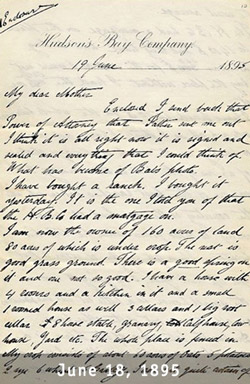 Enclosure
Hudson's Bay Company
19 June 1895
My dear Mother
Enclosed I send back that
Power of Attorney that Father sent me out
I think it is all right now it is signed and
sealed and everything that I could think of
What has become of Bab's photo.
I have bought a ranch. I bought it
yesterday. It is the one I told you of that
the H.B.Co had a mortgage on.
I am now the owner of 160 acres of land
80 acres of which is under crop. The rest is
good grass ground. There is a good spring on
it and one not so good. I have a house with
4 rooms and a kitchen in it and a small
1 roomed house as well 3 cellars and 1 big root
cellar stable, granary, calf house, hen
house, yard etc. The whole place is fenced in
My crop consists of about 60 acres of oats
June 18, 1895